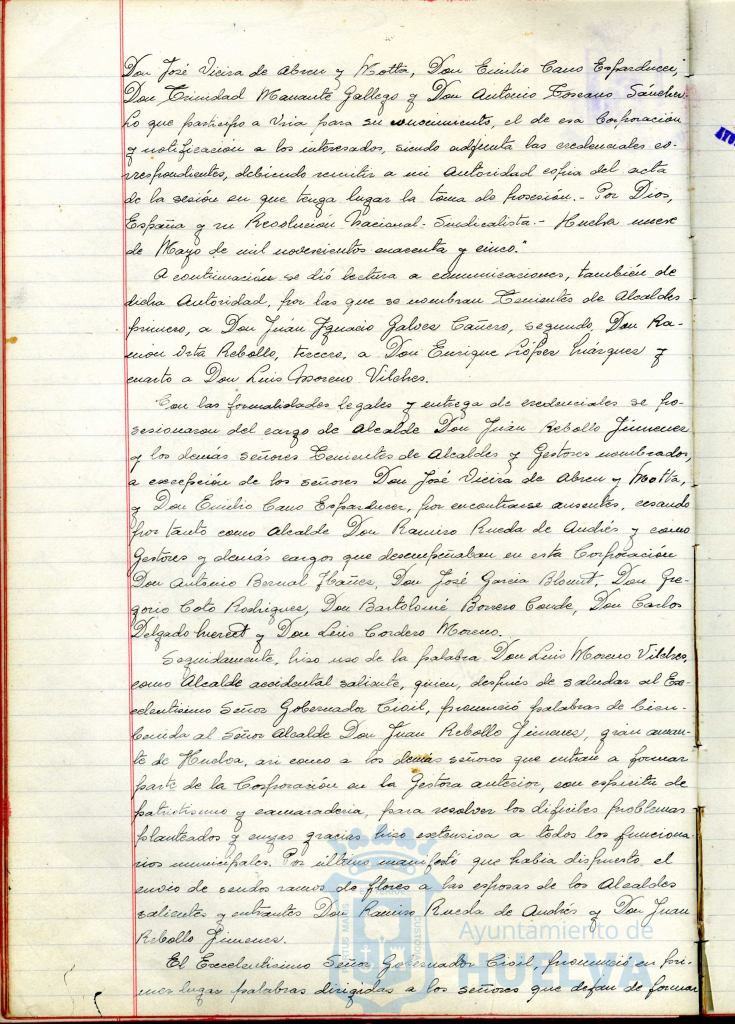 Don José Vieira de Abreu y Motta, Don Emilio Cano Esparducer,
Don Trinidad Manante Gallego y Don Antonio Toscano Sánchez.
Lo que participo a Vria para su conocimiento, el de esa Corporación
y notificación a los interesados, siendo adjunta las credenciales co-
rrespondientes, debiendo remitir a mi Autoridad copia del acta
de la sesión en que tenga lugar la toma de posesión.- Por Dios,
España y su Revolución Nacional-Sindicalista.- Huelva nueve
de Mayo de mil novecientos cuarenta y cinco."
A continuación se dió lectura a comunicaciones, también de
dicha Autoridad, por las que se nombran Tenientes de Alcaldes
primero, a Don Juan Ygnacio Galvez Cañero, segundo, Don Ra-
món Orta Rebollo, tercero, a Don Enrique López Márquez y
cuarto a Don Luis Moreno Vilches.
Con las formalidades legales y entrega de credenciales se po-
sesionaron del cargo de Alcalde Don Juan Rebollo Jimenez
y los demás señores Tenientes de Alcaldes y Gestores nombrados,
a excepción de los señores Don José Vieira de Abreu y Motta,
y Don Emilio Cano Esparducer, por encontrarse ausentes, cesando
por tanto como Alcalde Don Ramiro Rueda de Andrés y como
Gestores y demás cargos que desempeñaban en esta Corporación
Don Antonio Bernal Ybañez, Don José Garcia Blount, Don Gre-
gorio Coto Rodriguez, Don Bartolomé Borrero Conde, Don Carlos
Delgado y Don Luis Cordero Moreno.
Seguidamente, hizo uso de la palabra Don Luis Moreno Vilches,
como Alcalde accidental saliente, quien, después de saludar al Ex-
celentisimo Señor Gobernador Civil, pronunció palabras de bien-
venida al Señor Alcalde Don Juan Rebollo Jimenez, gran aman-
te de Huelva, asi como a los demás señores que entran a formar
parte de la Corporación en la Gestora anterior, con espiritu de
patriotismo y camaradería, para resolver los dificiles problemas
planteados y cuyas gracias hizo extensiva a todos los funciona-
rios municipales. Por último manifestó que habia dispuesto el
envio de sendos ramos de flores a las esposas de los Alcaldes
salientes y entrantes Don Ramiro Rueda de Andrés y Don Juan
Rebollo Jimenez.
El Excelentisimo Señor Gobernador Civil, pronunció en pri-
mer lugar palabras dirigidas a los señores que dejan de formar
Ayuntamiento de
HUELVA